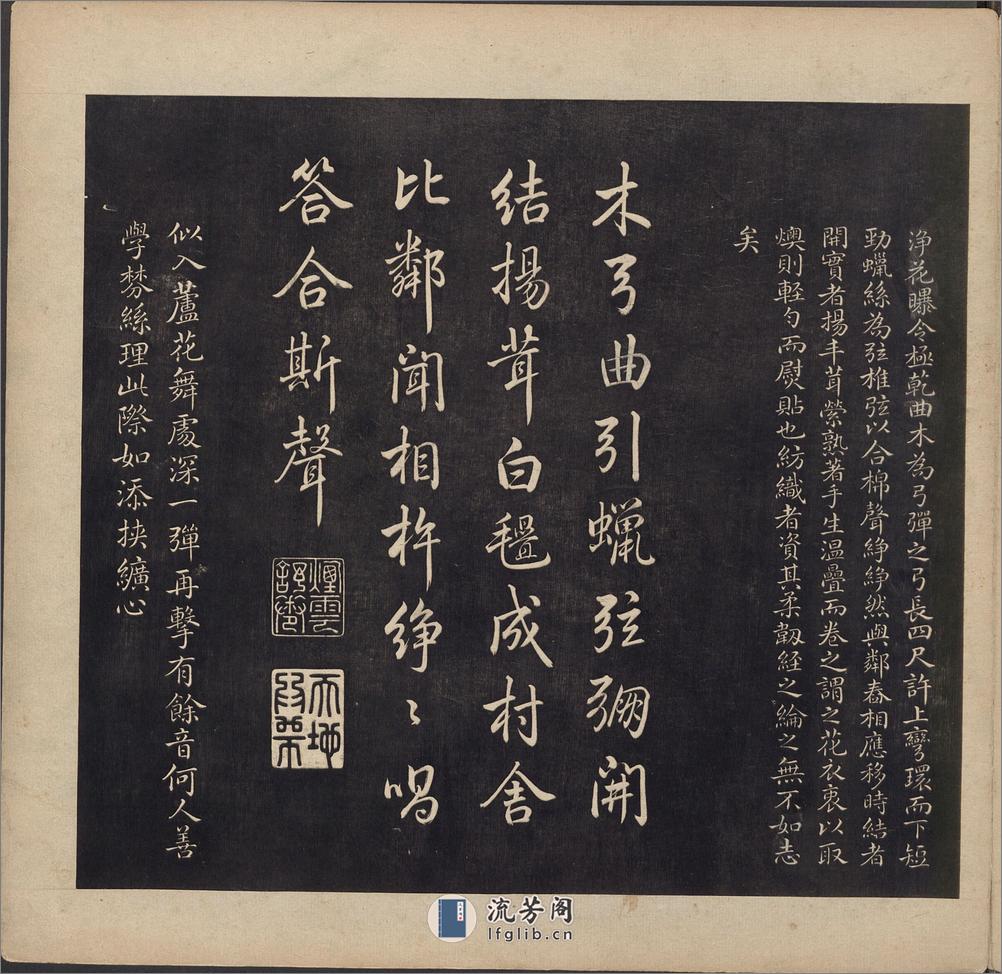 浄花曝令極乾曲木為弓彈之弓長四尺許上彎環而下短
勁蠟絲為弦椎弦以合棉聲錚錚然與鄰舂相應移時結者
開實者揚丰茸縈熟著手生温疊而卷之謂之花衣衷以取
燠則輕勻而熨貼也紡織者資其柔韌経之綸之無不如志
矣
木弓曲引蠟弦弸開
結揚茸白氊成村舍
比鄰聞相杵錚〻唱
答合斯聲
似入蘆花舞處深一彈再擊有餘音何人善
學棼絲理此際如添挾纊心
流芳阁
lfglib.cn